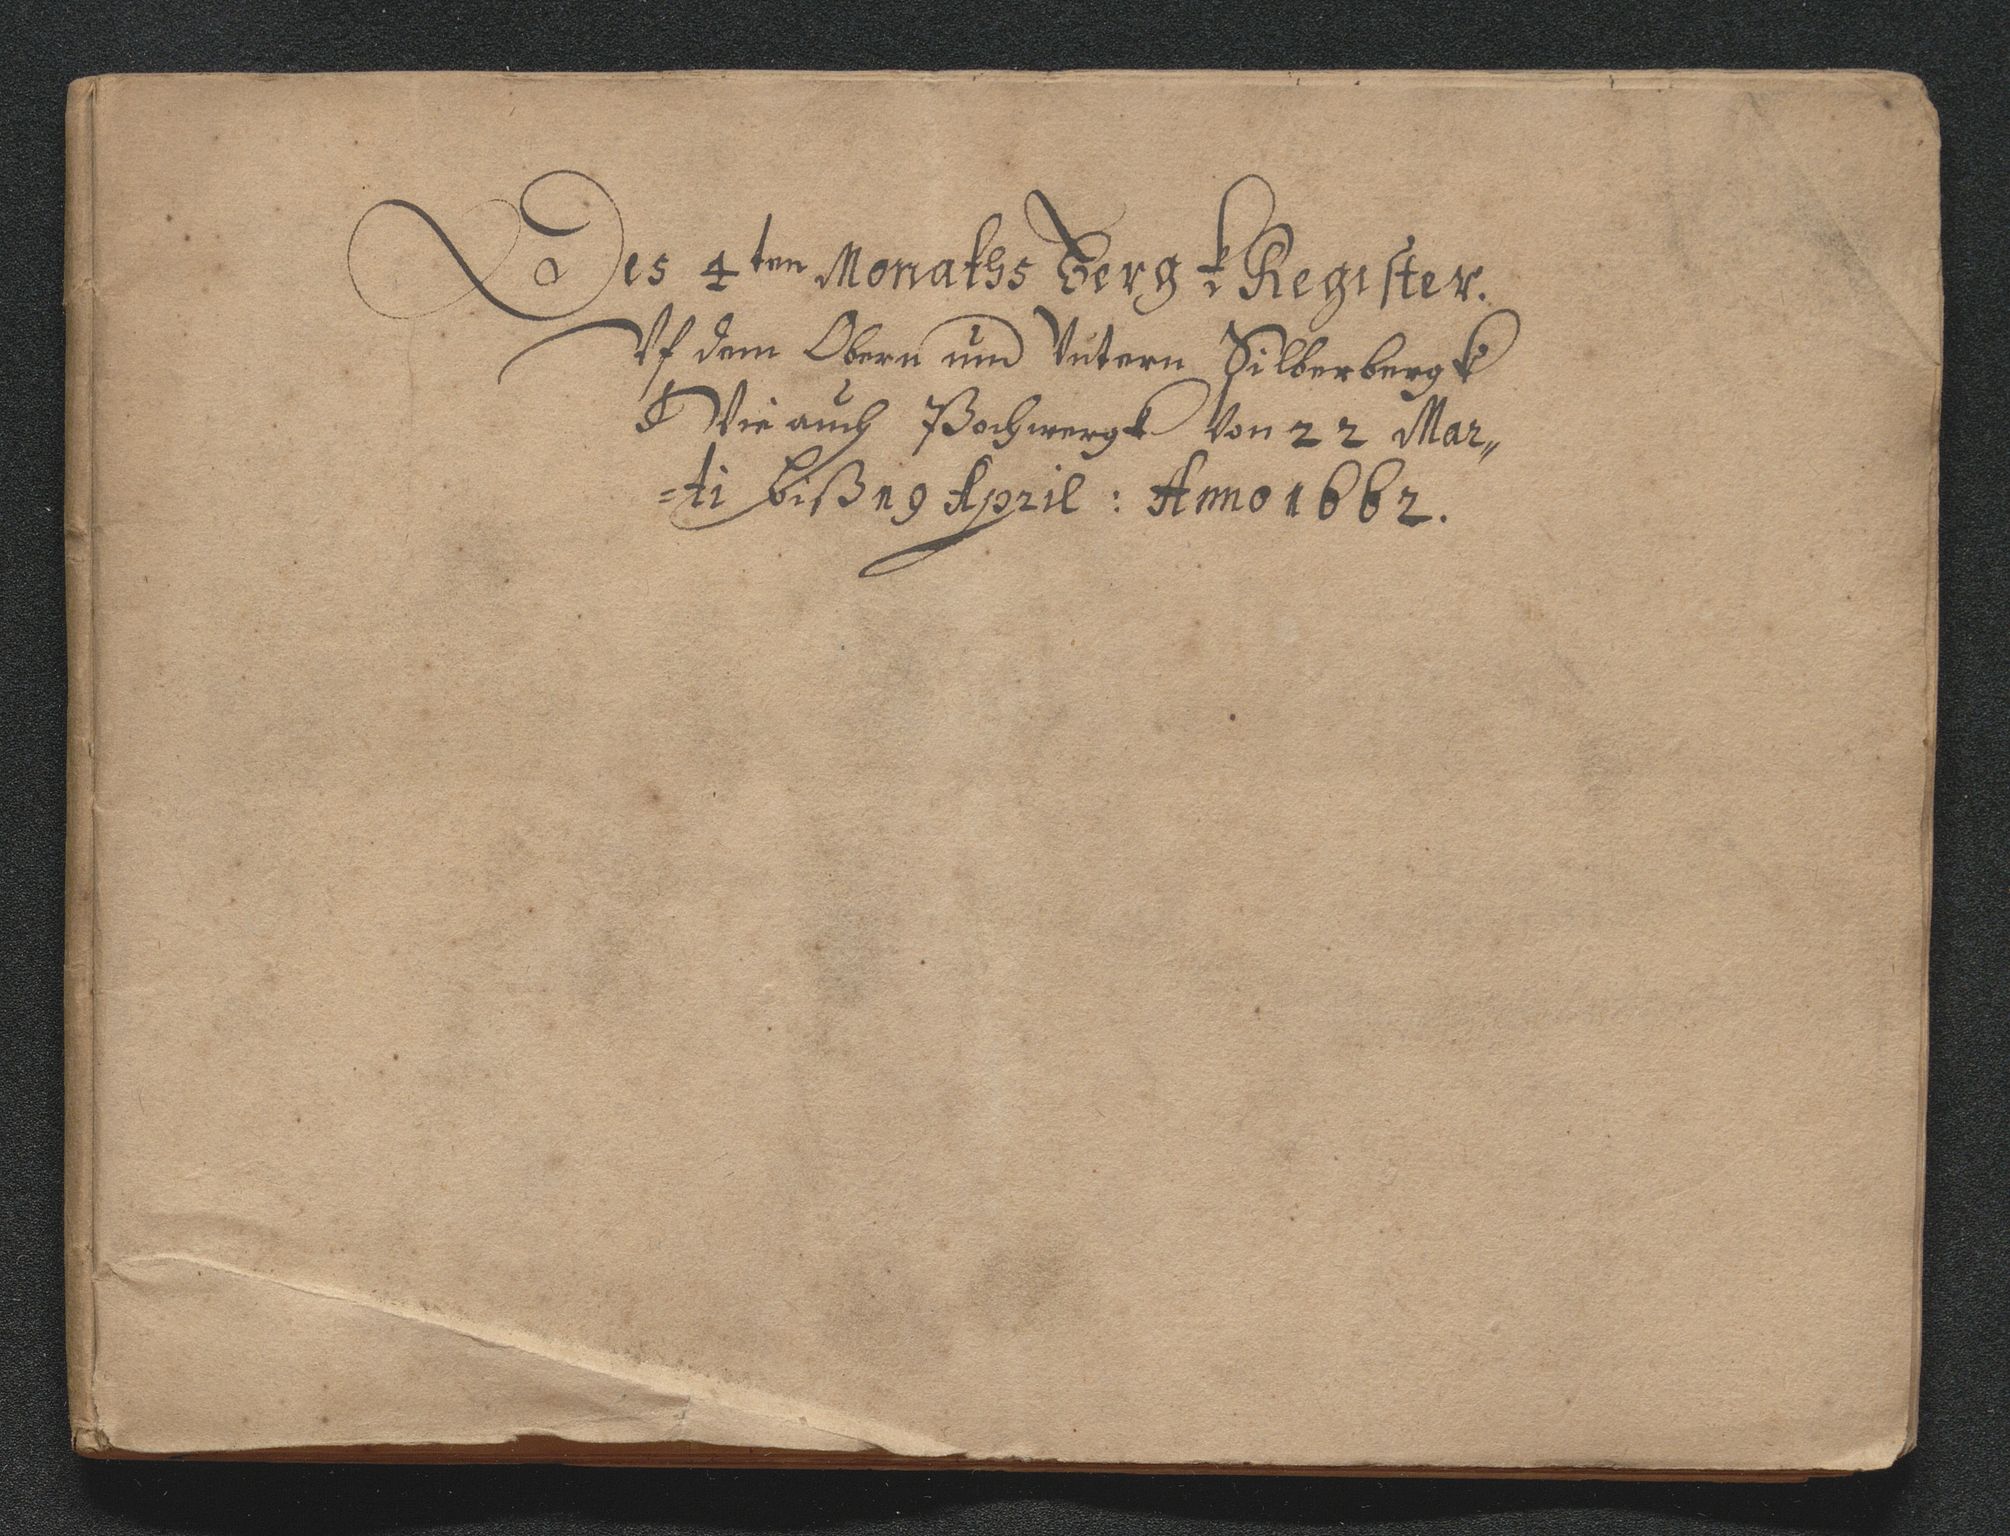 Des 4ten Monaths Bergk Register.
Vf dem Obern und Vntern Silberbergk
Wie auch Pochwergk von 22 Mar„
=ti biß 19 April : Anno 1662.